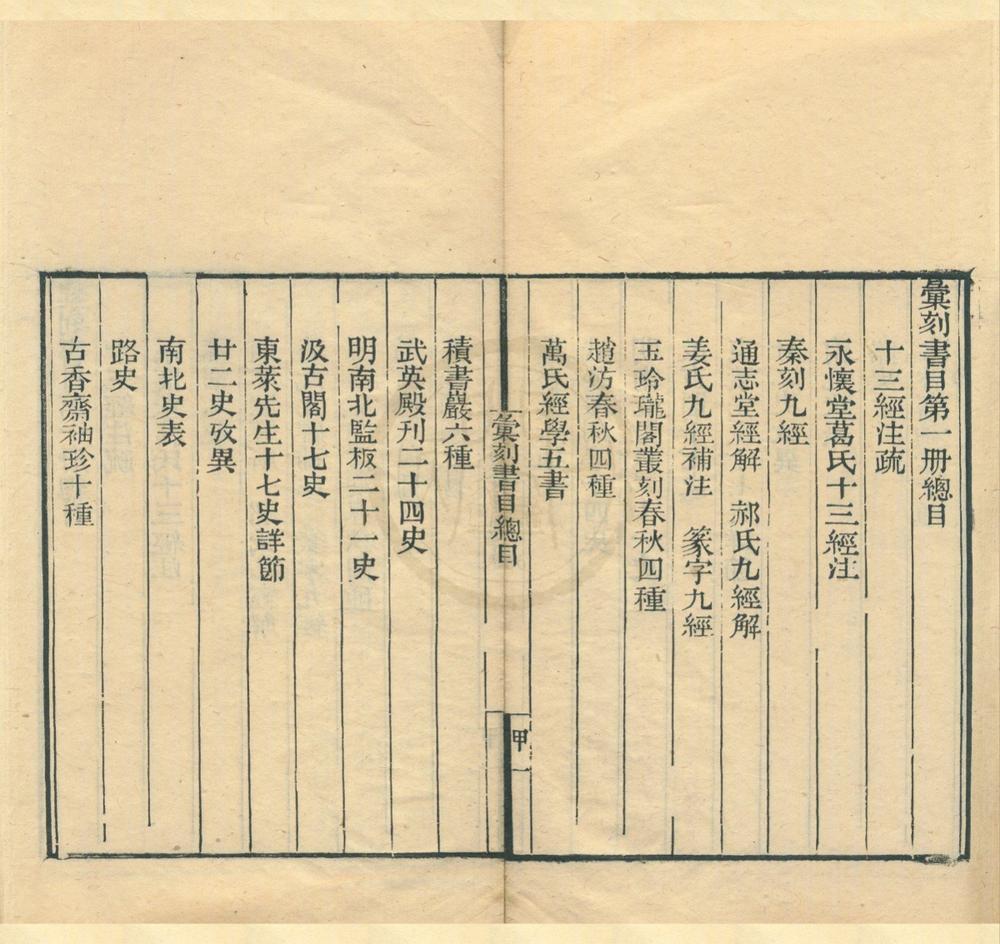 彙刻書目第一册總目
十三經注疏
永懷堂葛氏十三經注
秦刻九經
通志堂經解 郝氏九經解
姜氏九經補注 篆字九經
玉玲瓏閣叢刻春秋四種
趙汸春秋四種
萬氏經學五書
彙刻書目總目
甲
一
積書巖六種
武英殿刊二十四史
明南北監板二十一史
汲古閣十七史
東萊先生十七史詳節
廿二史攷異
南北史表
路史
古香齋袖珍十種